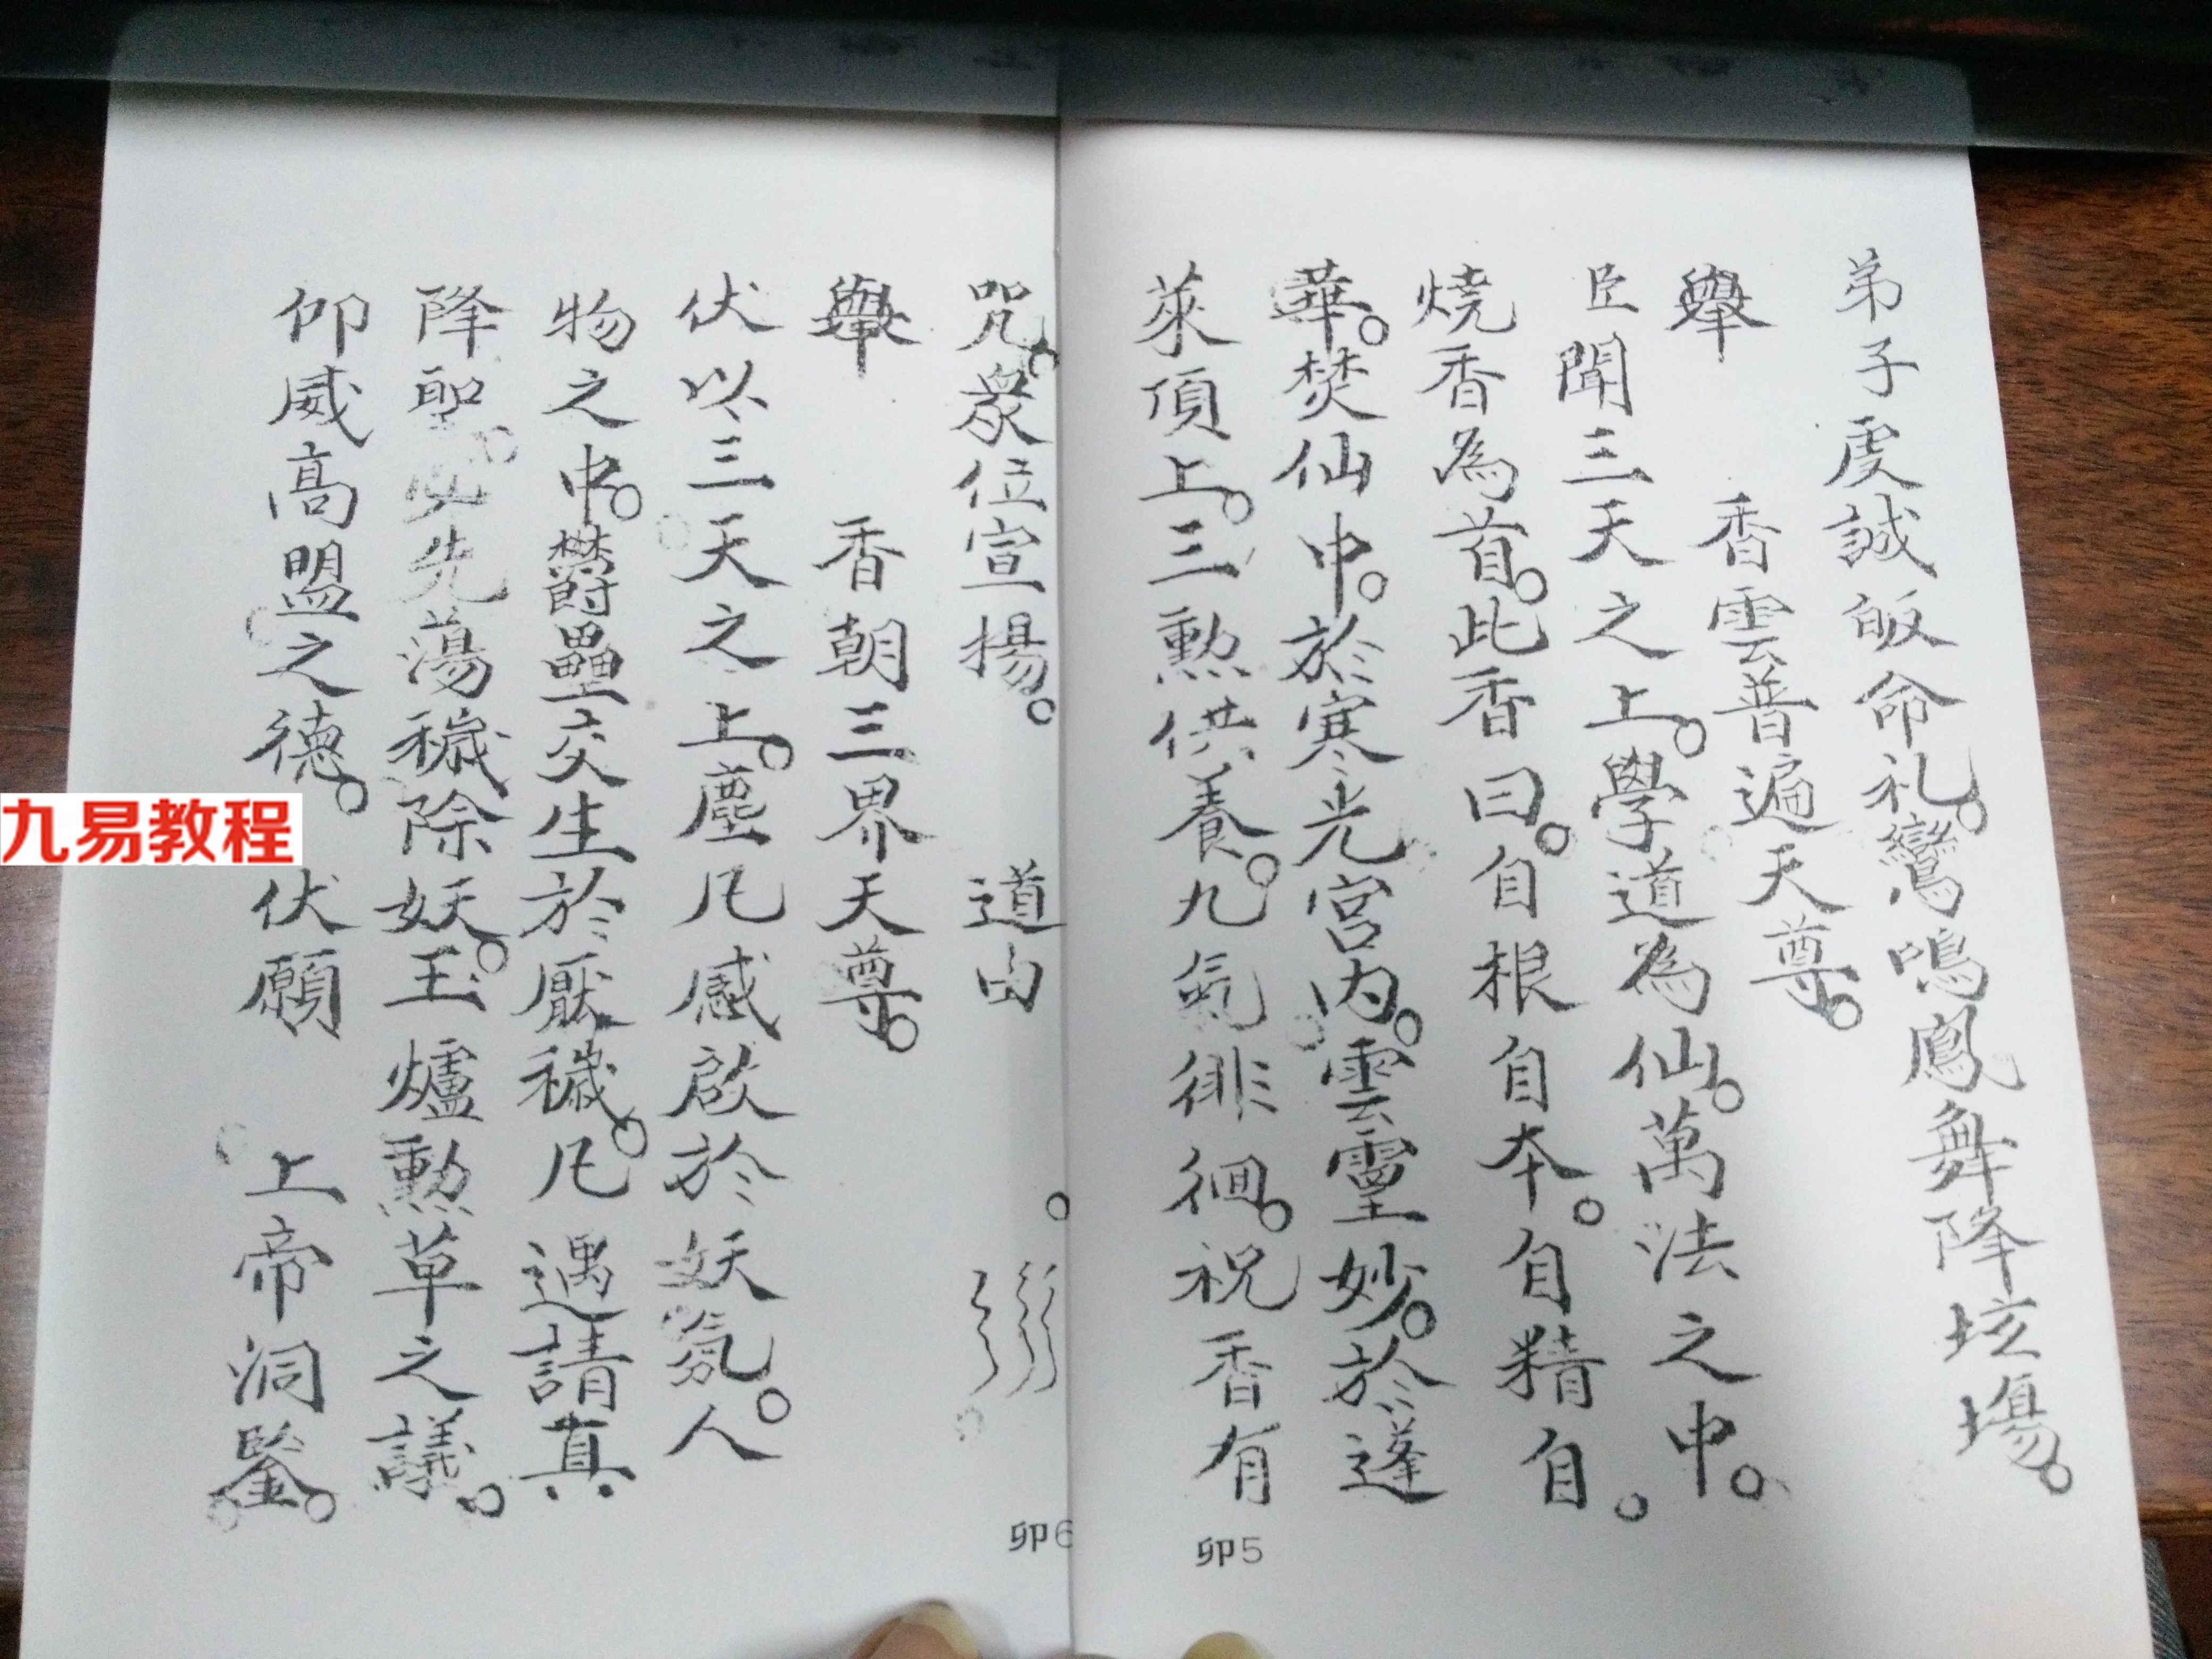 弟子虔誠皈命礼。鸞鳴鳳舞降坛場。
舉 香雲普遍天尊。
臣聞三天之上。學道為仙。萬法之中。
燒香為首。此香曰。自根自本。自精自。
華。焚仙中。於寒光宮內。雲霊妙。於蓬
萊頂上。三勲供養。九氣徘徊。祝香有
卯5
咒。眾位宣揚。 道由 。
舉 香朝三界天尊。
伏以三天之上。塵凡感啟於妖氛。人
物之中。欝壘交生於厭穢。凡遇請真
降聖。必先蕩穢除妖。王爐勲草之議。
仰威高盟之德。 伏願 上帝洞鑒。
卯6
九易教程